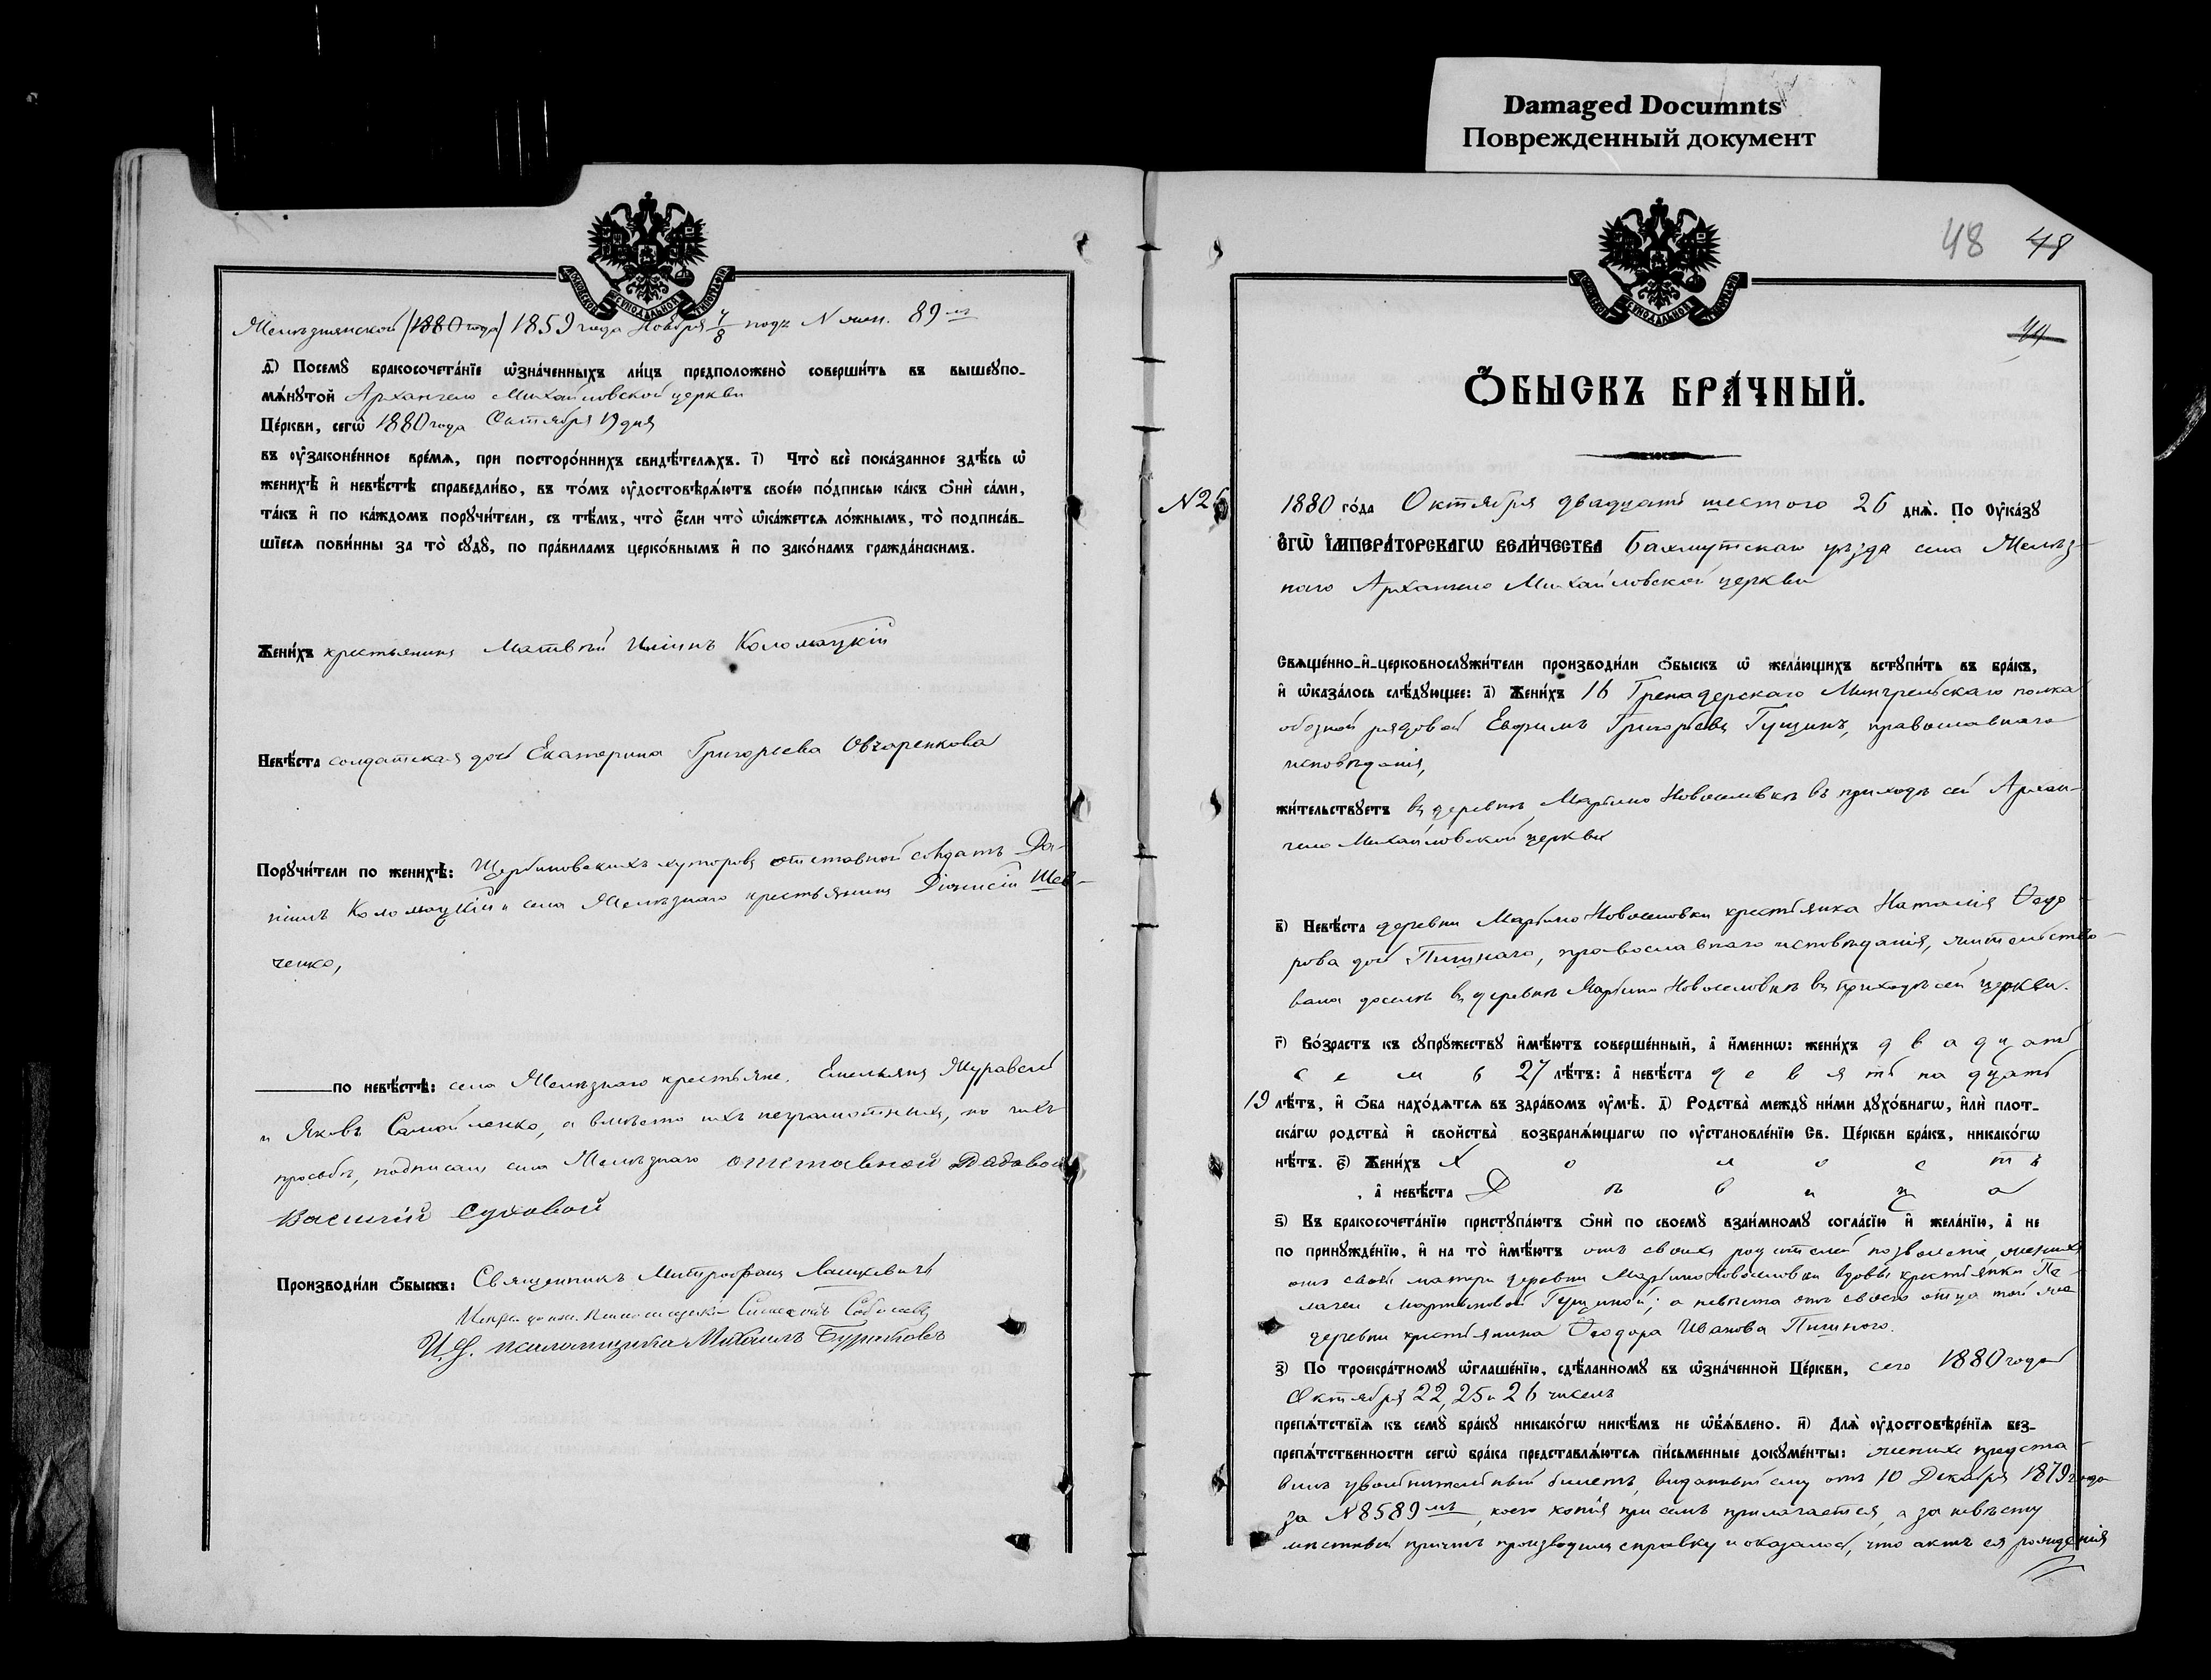 Damaged Documnts
Поврежденный документ
Желѣзнянской (1880 года) 1859 года Ноября 4/8 подъ № жен. 89 мъ
д҃) Посемꙋ бракосочета́нїе ѡ҆зна́ченныхъ ли́цъ предположено̀ соверши́ть въ вышеꙋпо-
мѧ́нꙋтой Архангело Михайловской церкви
Це́ркви, сегѡ̀ 1880 года Октября 19 дня
въ ᲂу҆законе́нное вре́мѧ, при посторо́ннихъ свидѣ́телѧхъ. і҃) Что̀ всѐ пока́занное здѣ́сь ѡ҆
женихѣ̀ и҆ невѣ́стѣ справедли́во, въ то́мъ ᲂу҆достовѣрѧ́ютъ свое́ю по́дписью ка́къ ѻ҆нѝ са́ми,
та́къ и҆ по ка́ждомъ порꙋчи́тели, съ тѣ́мъ, что̀ є҆́сли что̀ ѡ҆ка́жетсѧ ло́жнымъ, то̀ подписа́в-
шїесѧ пови́нны за то̀ сꙋдꙋ̀, по пра́виламъ церко́внымъ и҆ по зако́намъ гражда́нскимъ.
Жени́хъ крестьянинъ Матвѣй Ильинъ Коломацкій
Невѣ́ста солдатская дочь Екатерина Григорьева Овчаренкова
Порꙋчи́тели по женихѣ̀: Щербиновскихъ хуторовъ отставной солдатъ Да-
ніилъ Коломацкій и села Желѣзнаго крестьянинъ Діонисій Шев-
ченко,
по невѣ́стѣ: села Желѣзнаго крестьяне, Емельянъ Журавель
и Яковъ Самойленко, а вмѣсто ихъ неграмотныхъ, по ихъ
просьбѣ, подписалъ села Желѣзнаго отставной Рядовой
Василій Суховой
Производи́ли ѻ҆́быскъ: Священникъ Митрофанъ
И.д. псаломщика Михаилъ
48 48
44
Ѻ҆́БЫСКЪ БРА́ЧНЫЙ.
№ 26
1880 го́да Октября двадцать шестого 26 днѧ̀. По Оу҆ка́зꙋ
Є҆гѡ̀ И҆мпера́торскагѡ Вели́чества Бахмутскаго уѣзда села Желѣз-
наго Архангело Михайловской церкви
Свѧще́нно-и҆-церковнослꙋжи́тели производи́ли ѻ҆́быскъ ѡ҆ жела́ющихъ встꙋпи́ть въ бра́къ,
и҆ ѡ҆каза́лось слѣ́дꙋющее: а҃) Жени́хъ 16 Гренадерскаго Мингрельскаго полка
обозной рядовой Евфимъ Григорьевъ Гущинъ, православнаго
исповѣданія,
жи́тельствꙋетъ въ деревнѣ Марьино Новоселовкѣ въ приходѣ сей Архан-
гело Михайловской церкви
в҃) Невѣ́ста деревни Марьино Новоселовки крестьянка Наталія Ѳедо-
рова дочь Пишнаго, православнаго исповѣданія, жительство-
вала доселѣ въ деревнѣ Марьино Новоселовкѣ въ приходѣ сей церкви.
г҃) Во́зрастъ къ сꙋпрꙋ́жествꙋ и҆мѣ́ютъ соверше́нный, а҆ и҆́меннѡ: жени́хъ двадцать
семь 27 лѣ́тъ: а҆ невѣ́ста девятнадцать
19 лѣ́тъ, и҆ ѻ҆́ба нахо́дѧтсѧ въ здра́вомъ ᲂу҆мѣ̀. д҃) Родства̀ междꙋ̀ ни́ми дꙋхо́внагѡ, и҆лѝ плот-
ска́гѡ родства̀ и҆ свойства̀ возбранѧ́ющагѡ по ᲂу҆становле́нїю Св. Це́ркви бра́къ, никако́гѡ
нѣ́тъ. є҃) Жени́хъ Холостъ
, а҆ невѣ́ста Дѣвица
ѕ҃) Въ бракосочета́нїю пристꙋпа́ютъ ѻ҆нѝ по своемꙋ̀ взаи́мномꙋ согла́сїю и҆ жела́нїю, а҆ не
по принꙋжде́нїю, и҆ на то̀ и҆мѣ́ютъ отъ своихъ родителей позволеніе, женихъ
отъ своей матери деревни Марьино Новоселовки вдовы крестьянки Пе-
лагеи Мартыновой Гущиной; а невѣста отъ своего отца той же
деревни крестьянина Ѳеодора Иванова Пишного.
з҃) По троекра́тномꙋ ѡ҆глаше́нїю, сдѣ́ланномꙋ въ ѡ҆зна́ченной Це́ркви, сего 1880 года
Октября 22, 25 и 26 чиселъ
препѧ́тствїѧ къ семꙋ̀ бра́кꙋ никако́гѡ никѣ́мъ не ѡ҆б̾ѧ́влено. и҃) Длѧ̀ ᲂу҆достовѣре́нїѧ без-
препѧ́тственности сегѡ̀ бра́ка представлѧ́ютсѧ пи́сьменные докꙋме́нты: женихъ предста-
вилъ увольнительный билетъ, выданный ему отъ 10 Декабря 1879 года
за № 8589 мъ, коего копія при семъ прилагается, а за невѣсту
мѣстный причтъ производилъ справку и оказалось, что актъ ея рожденія